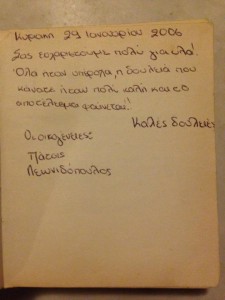 Κυριακή 29 Ιανουαρίου 2006
Σας ευχαριστούμε πολύ για όλα!
Όλα ήταν υπέροχα, η δουλειά που
κάνατε ήταν πολύ καλή και το
αποτέλεσμα φαίνεται!
Καλές δουλειές
Οι οικογένειες:
Λεωνιδόπουλος